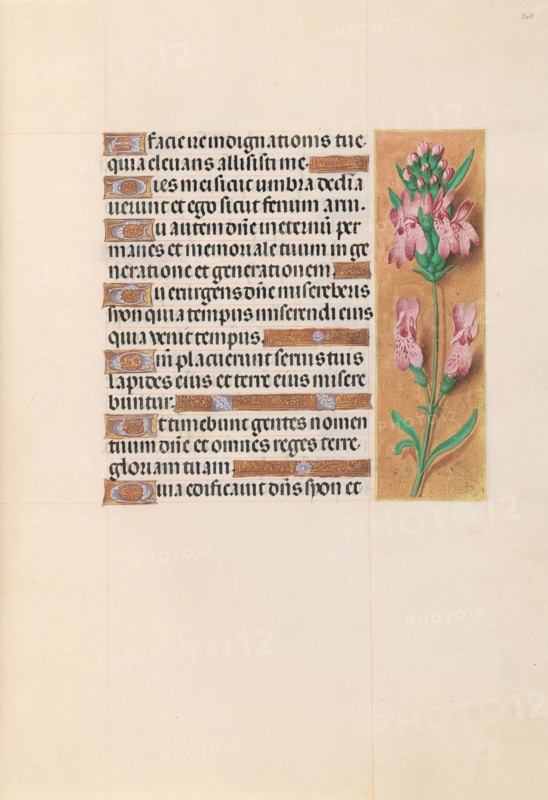 207
A facie ire indignationis tue
quia elevans allisisti me.
Dies mei sicut umbra declīa
verunt et ego sicut fenum arui.
Tu autem dñe in eternū per
manes et memoriale tuum in ge
neratione et generationem.
Tu exurgens dñe misereberis
syon quia tempus miserendi eius
quia venit tempus.
Qm̄ placuerunt servis tuis
lapides eius et terre eius misere
buntur.
Et timebunt gentes nomen
tuum dñe et omnes reges terre
gloriam tuam.
Quia edificavit dñs syon et
PHOTO12